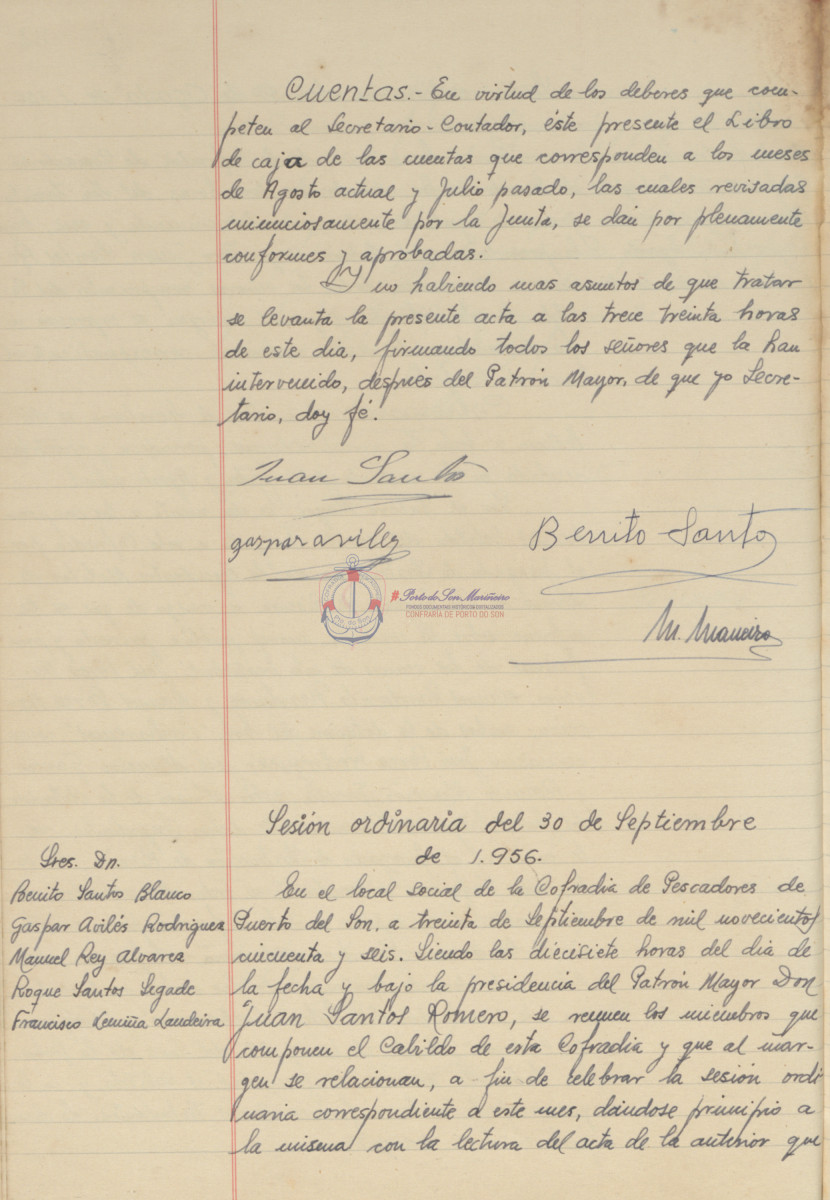 Cuentas.- En virtud de los deberes que com-
peten al Secretario-Contador, éste presente el Libro
de caja de las cuentas que corresponden a los meses
de Agosto actual y Julio pasado, las cuales revisadas
minuciosamente por la Junta, se dán por plenamente
conformes y aprobadas.
Y no habiendo mas asuntos de que tratar
se levanta la presente acta a las trece treinta horas
de este dia, firmando todos los señores que la han
intervenido, después del Patrón Mayor, de que yo Secre-
tario, doy fé.
Juan Santos
gaspar aviles
Benito Santos
M. Maneiro
#Porto do Son Mariñeiro
FONDOS DOCUMENTAIS HISTÓRICOS DIXITALIZADOS
CONFRARÍA DE PORTO DO SON
Sesión ordinaria del 30 de Septiembre
de 1.956.
Sres. Dn.
Benito Santos Blanco
Gaspar Avilés Rodriguez
Manuel Rey Alvarez
Roque Santos Segade
Francisco Lemiña Landeira
En el local social de la Cofradia de Pescadores de
Puerto del Son, a treinta de Septiembre de mil novecientos
cincuenta y seis. Siendo las diecisiete horas del dia de
la fecha y bajo la presidencia del Patrón Mayor Don
Juan Santos Romero, se reunen los miembros que
componen el Cabildo de esta Cofradia y que al mar-
gen se relacionan, a fin de celebrar la sesión ordi
naria correspondiente a este mes, dándose principio a
la misma con la lectura del acta de la anterior que